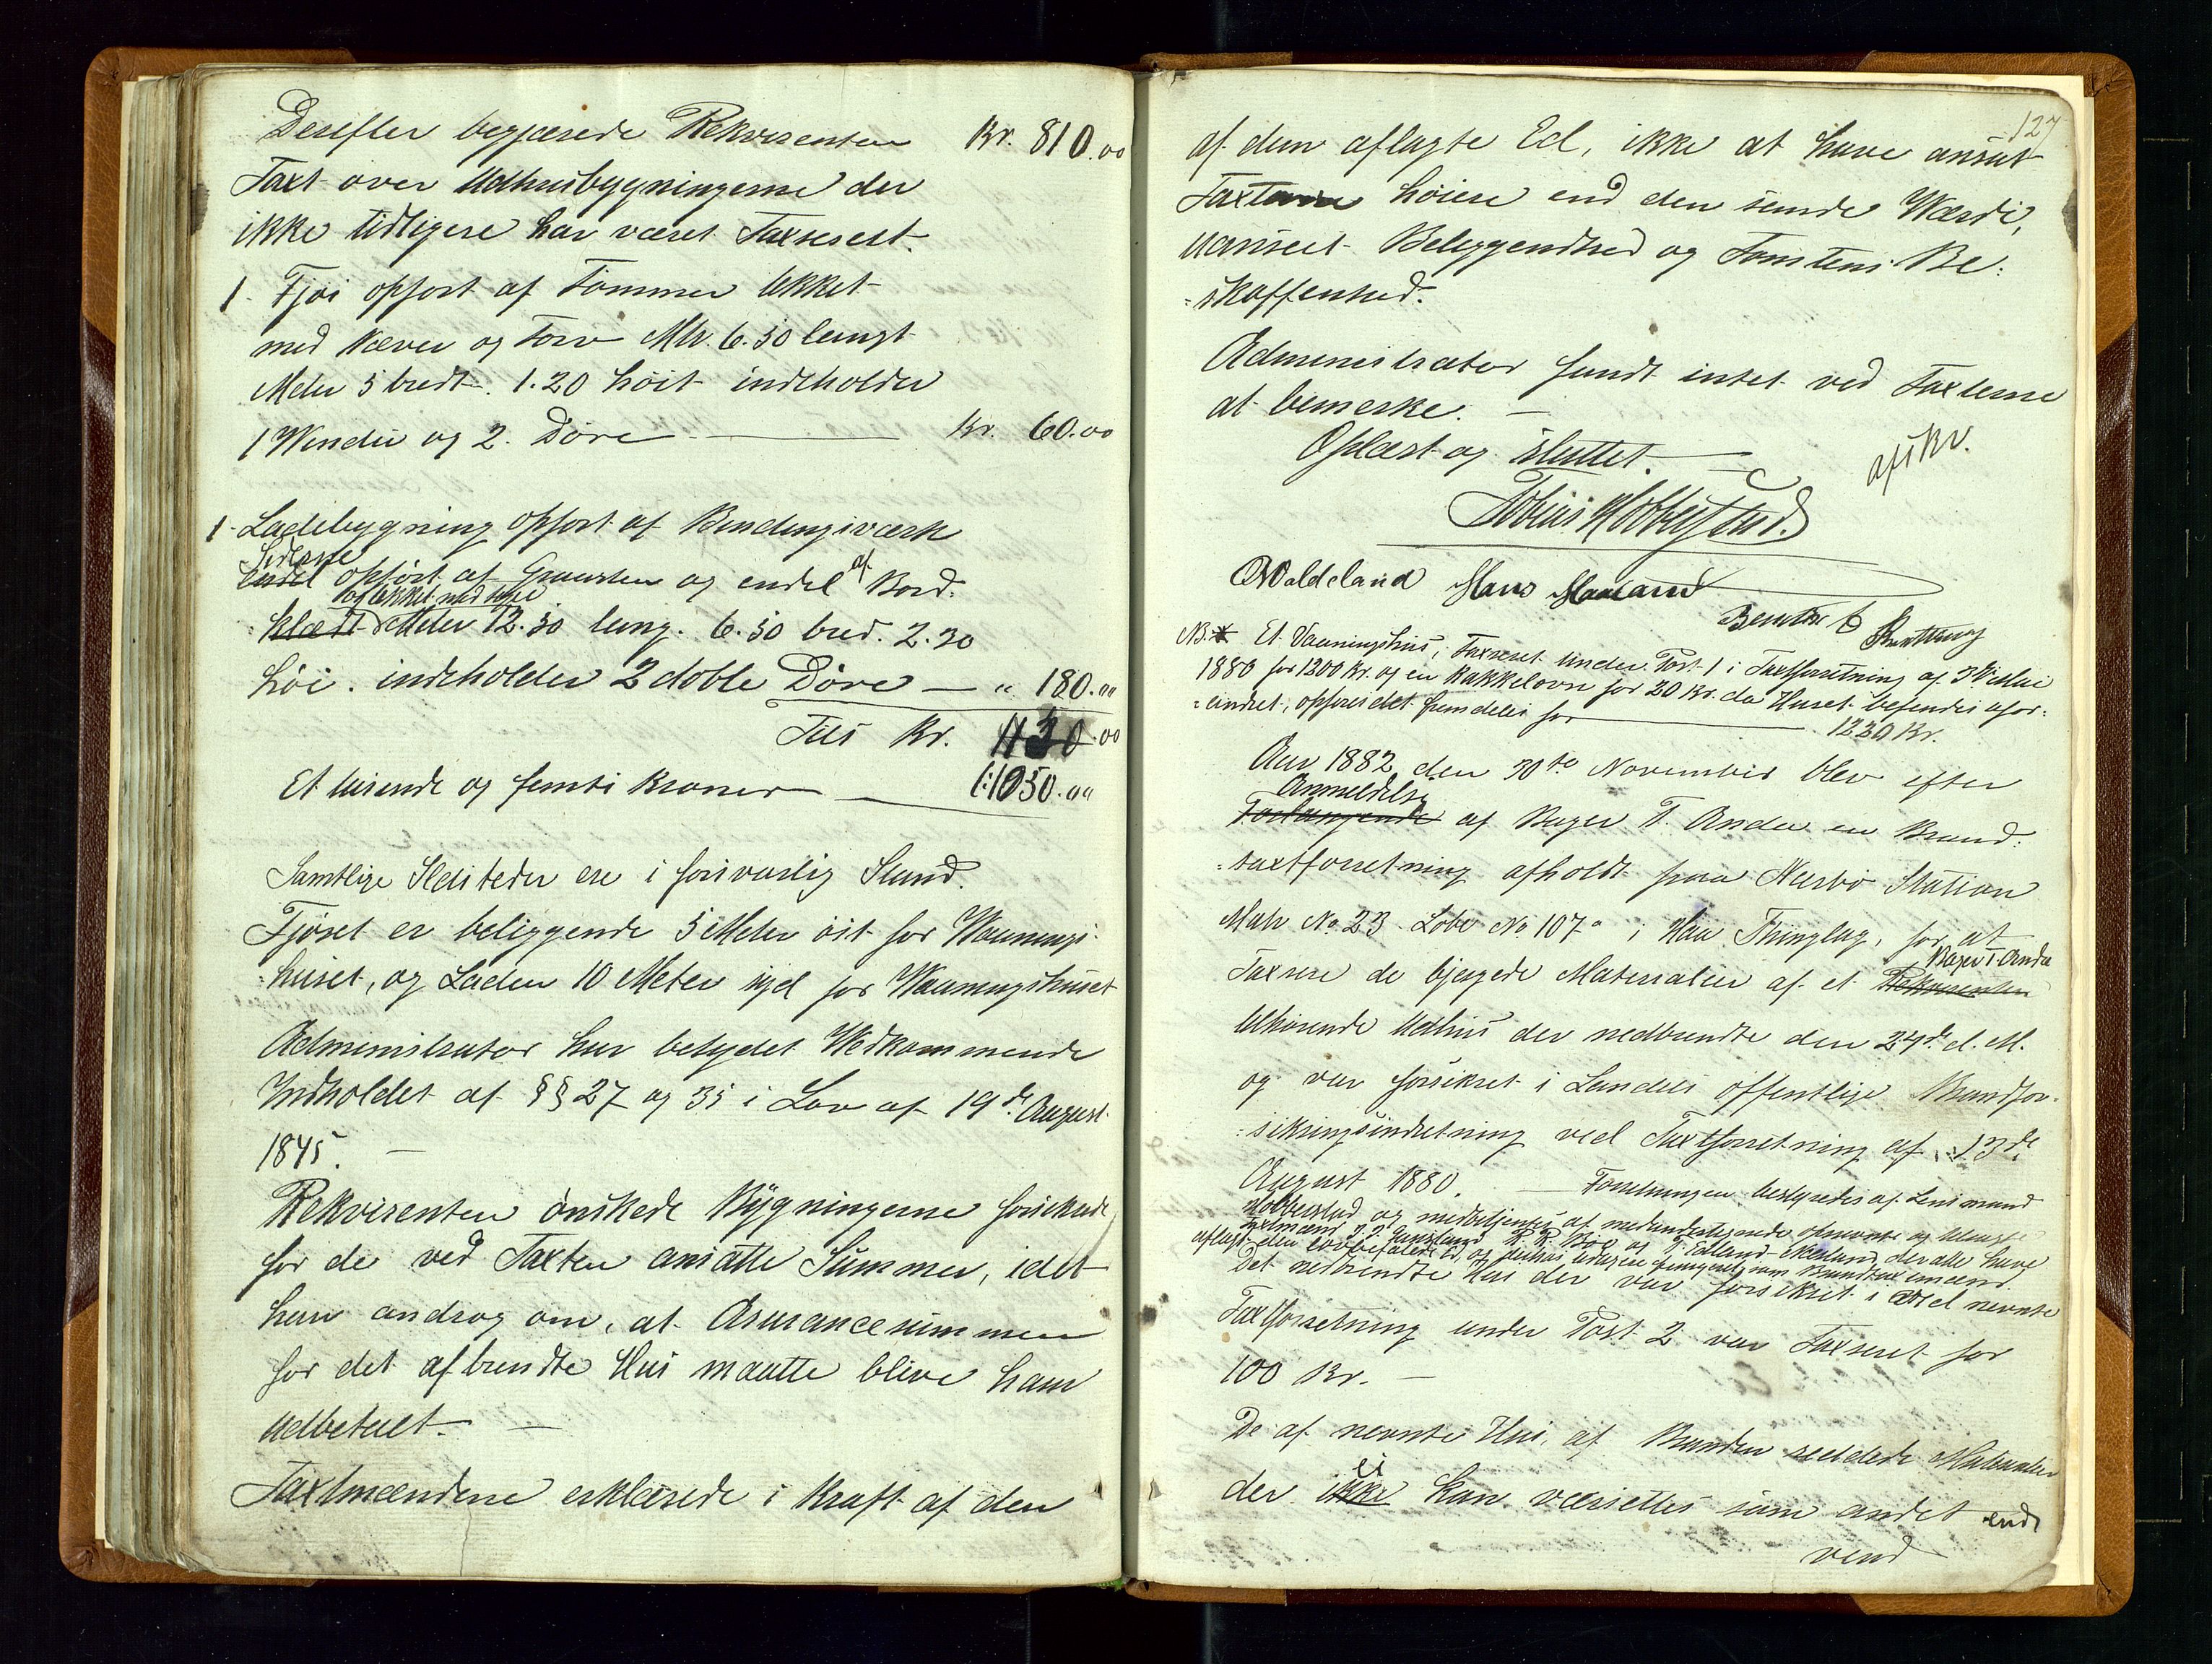 Derefter begjærede Rekvirenten Kr. 810.00
Taxt over Udhusbygningerne der
ikke tidligere har været Taxseret.
1. Fjøs opført af Tømmer tekket
med Næver og Torv Mtr. 6.50 langt
Meter 5 bredt. 1.20 høit indeholder
1 Vindu og 2. Døre — Kr. 60.00
1. Ladebygning opført af Bendingsværk
Siderne
endel opført af Graasten og endel af Bord-
og tekket med
klædt Meter 12.50 lang. 6.50 bred. 2.30
høi. indeholder 2 doble Døre — " 180.00
Tils Kr. 30.00
Et tusende og femti Kroner — 1050.00
Samtlige Ildsteder ere i forsvarlig Stand.
Fjøset er beliggende 5 Meter øst for Vaanings-
huset, og Laden 10 Meter syd for Vaaningshuset
Administrator har betydet Vedkommende
Indholdet af §§ 27 og 35 i Lov af 19de August
1845. —
Rekvirenten ønskede Bygningerne forsikrede
for de ved Taxten ansatte Summer, idet
han androg om, at Asurancesummen
for det afbrendte Hus maatte blive ham
udbetalt. —
Taxtmændene erklærede i Kraft af den
127
af dem aflagte Ed, ikke at have ansat
Taxterne høiere end den sande Værdi,
uanseet Beliggendhed og Tomtens Be-
skaffenhed.
Administrator fandt intet ved Taxterne
at bemerke. —
Oplæst og sluttet. —
afskr.
Tobias Kobberstad.
Valdeland Hans
NB. Et Vaaningshus, Taxseret under Post 1 i Taxtforretning af 3de Mai
1880 for 1200 Kr. og en Kakkelovn for 20 Kr. da Huset befindes ufor-
andret, opføres det fremdeles for — 1220 Kr.
Aar 1882 den 30te November blev efter
Anmeldelse
Forlangende af Bager T. Anda en Brand-
taxtforretning afholdt paa Nærbø Station
Matr No. 23 Løbe No. 107a i Haa Thinglag, for at
Bager T. Anda
Taxsere de bjergede Materialier af et Rekvirenten
tilhørende Udhus der nedbrendte den 24de d. M.
og var forsikret i Landets offentlige Brandfor-
sikringsindretning ved Taxtforretning af 13de
August 1880. — Forretningen bestyredes af Lensmand
Kobberstad og medbetjentes af medundertegnede opnævnte og
aflagt den lovbefalede Ed, og tidligere fungeret som Brandtaxtmænd.
Det nedbrendte Hus der var forsikret i nevnte
Taxtforretning under Post 2 var Taxseret for
100 Kr. —
De af nevnte Hus, af Branden reddede Materialier
ei
der ikke kan værsettes som andet end
vend